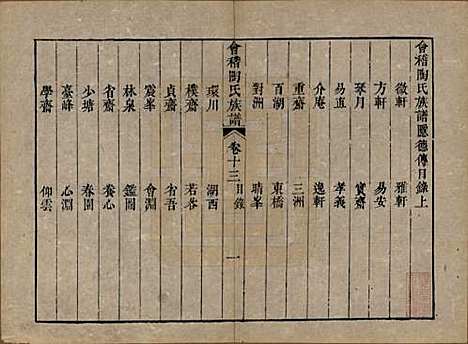 會稽陶氏族譜隱德傳目錄上
微軒 雅軒
方軒 易安
琴月 寶齋
易直 孝義
介庵 逸軒
重齋 三洲
百湖 東橋
對洲 晴峯
會稽陶氏族譜 卷十三 目錄 一
環川 湖西
樸齋 若谷
貞齋 省吾
震峯 會淵
林泉 鑑圃
省齋 養心
少塘 春圃
臺峰 心淵
學齋 仰雲